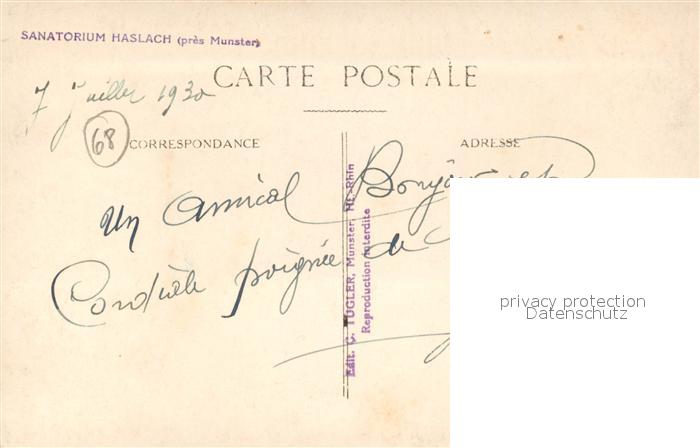 SANATORIUM HASLACH (près Munster)
CARTE POSTALE
7 Juillet 1930
68
CORRESPONDANCE
ADRESSE
Un Amical Bonjour et
Cordiale poignée de
Edit. C. TUGLER, Munster, Ht.-Rhin
Reproduction interdite
privacy protection
Datenschutz